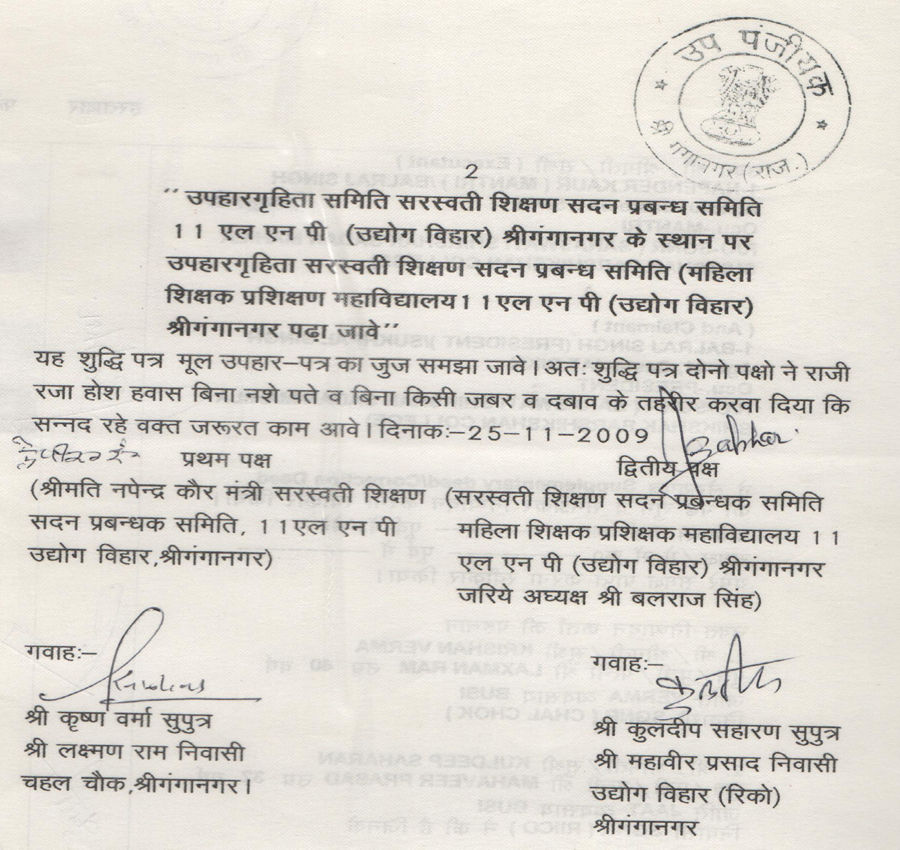 उप पंजीयक
श्री गंगानगर (राज.)
2
"उपहारगृहिता समिति सरस्वती शिक्षण सदन प्रबन्ध समिति
11 एल एन पी (उद्योग विहार) श्रीगंगानगर के स्थान पर
उपहारगृहिता सरस्वती शिक्षण सदन प्रबन्ध समिति (महिला
शिक्षक प्रशिक्षण महाविद्यालय11एल एन पी (उद्योग विहार)
श्रीगंगानगर पढ़ा जावे"
यह शुद्धि पत्र मूल उपहार-पत्र का जुज समझा जावे।अतः शुद्धि पत्र दोनो पक्षो ने राजी
रजा होश हवास बिना नशे पते व बिना किसी जबर व दबाव के तहरीर करवा दिया कि
सन्नद रहे वक्त जरूरत काम आवे।दिनाकः-25-11-2009
प्रथम पक्ष
(श्रीमति नपेन्द्र कौर मंत्री सरस्वती शिक्षण
सदन प्रबन्धक समिति, 11एल एन पी
उद्योग विहार,श्रीगंगानगर)
द्वितीय पक्ष
(सरस्वती शिक्षण सदन प्रबन्धक समिति
महिला शिक्षक प्रशिक्षक महाविद्यालय 11
एल एन पी (उद्योग विहार) श्रीगंगानगर
जरिये अध्यक्ष श्री बलराज सिंह)
गवाहः-
श्री कृष्ण वर्मा सुपुत्र
श्री लक्ष्मण राम निवासी
चहल चौक,श्रीगंगानगर।
गवाहः-
श्री कुलदीप सहारण सुपुत्र
श्री महावीर प्रसाद निवासी
उद्योग विहार (रिको)
श्रीगंगानगर